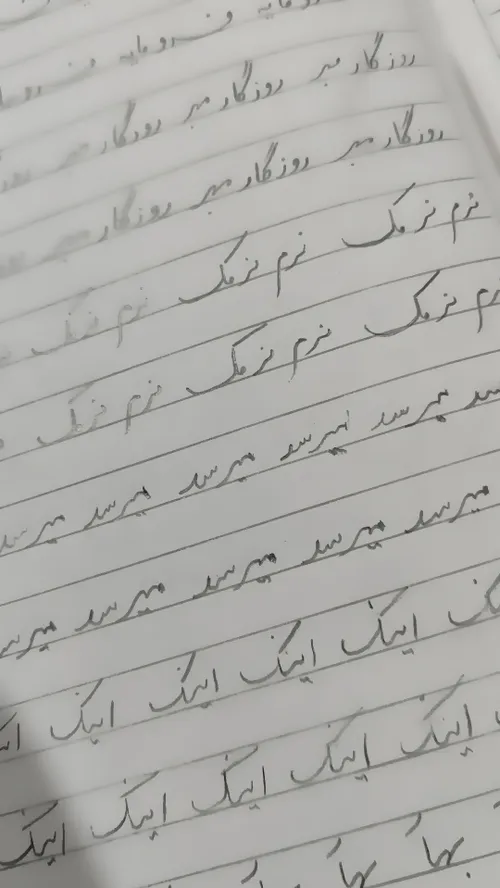 فرومایه فرومایه
روزگار مبر روزگار مبر روزگار مبر
روزگار مبر روزگار مبر روزگار مبر
نرم نرمک نرم نرمک نرم نرمک
نرم نرمک نرم نرمک نرم نرمک
میرسد میرسد میرسد میرسد میرسد
میرسد میرسد میرسد میرسد
اینک اینک اینک اینک
اینک اینک اینک اینک اینک
بهار